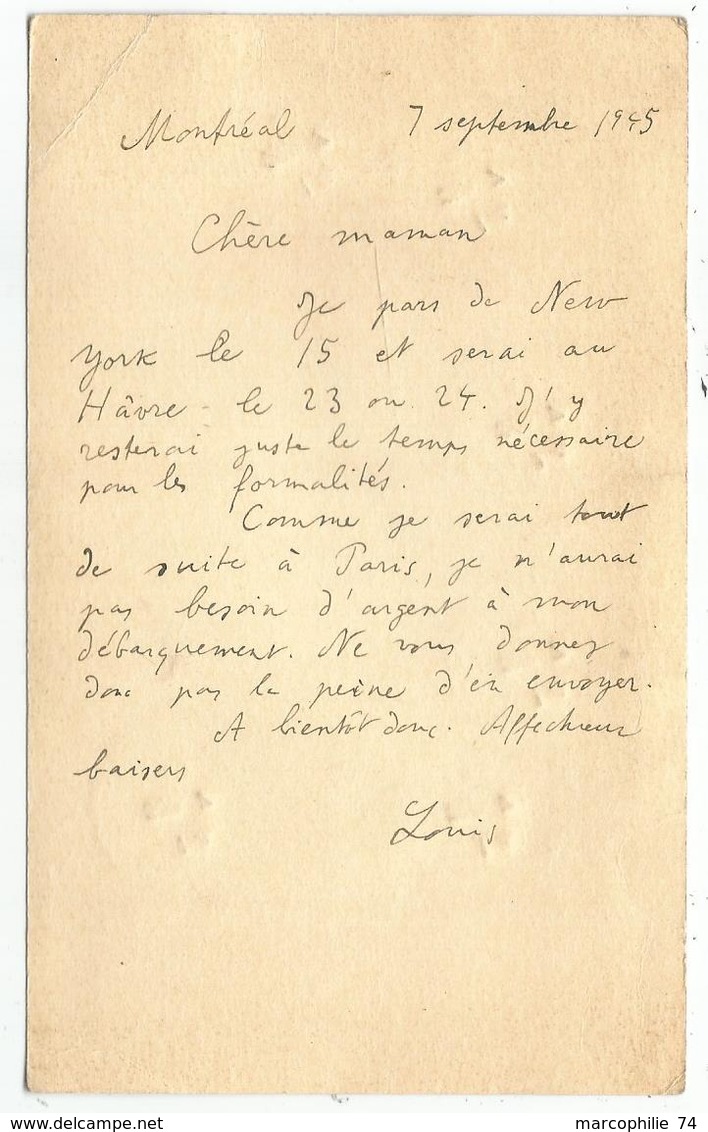 Montréal 7 septembre 1945
Chère maman
Je pars de New
York le 15 et serai au
Hâvre le 23 ou 24. J'y
resterai juste le temps nécessaire
pour les formalités.
Comme je serai tout
de suite à Paris, je n'aurai
pas besoin d'argent à mon
débarquement. Ne vous donnez
donc pas la peine d'en envoyer.
A bientôt donc. Affectueux
baisers
Louis
www.delcampe.net marcophilie 74